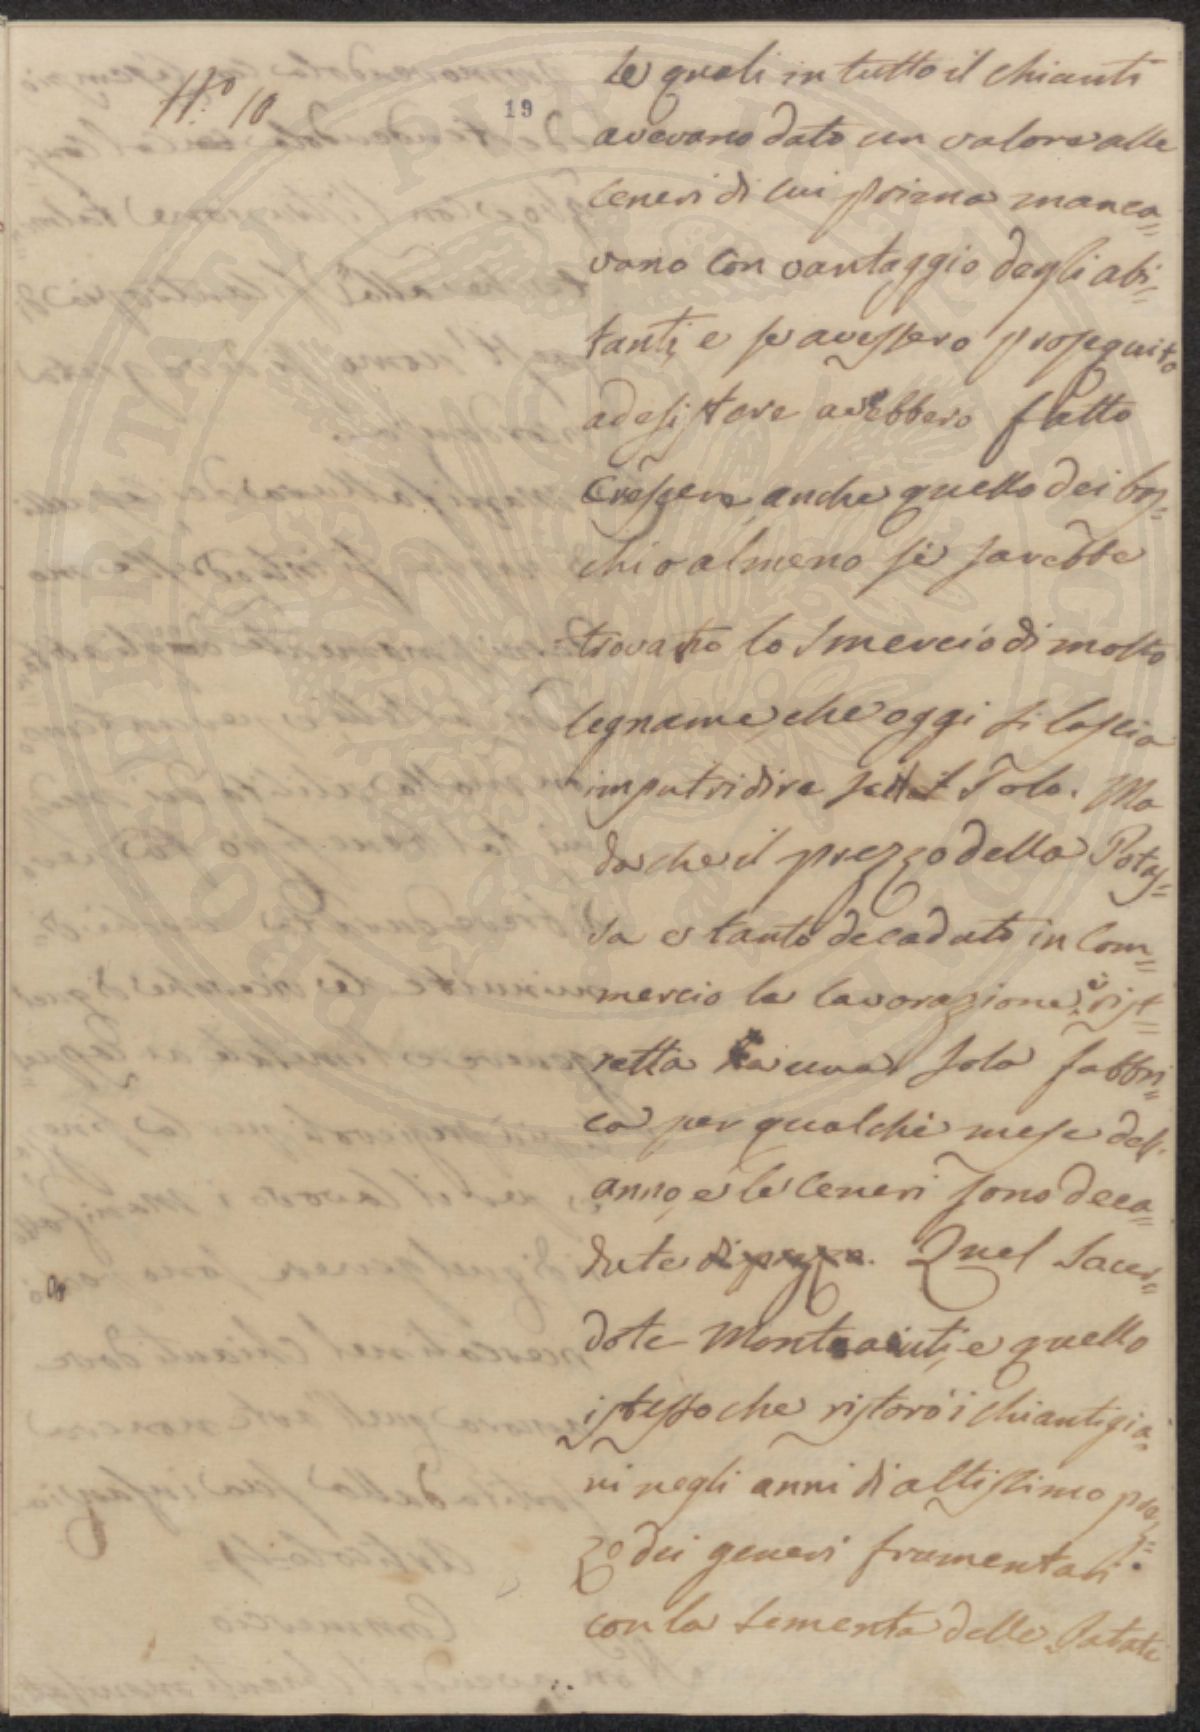 N.º 10
19
le quali in tutto il Chianti
avevano dato un valore alle
Ceneri di cui prima manca=
vano con vantaggio degli abi=
tanti, e se avessero proseguito
ad esistere avrebbero fatto
Crescere anche quello dei bos=
chi o almeno si sarebbe
trovato lo smercio di molto
legname, che oggi si lascia
imputridire sul Solo. Ma
da che il prezzo della Potas=
sa è tanto decaduto in Com=
mercio la lavorazione è rist=
retta a una sola fabbri=
ca per qualche mese dell'
anno, e le Ceneri sono deca=
dute di prezzo. Quel Sacer=
dote Montaiuti, e quello
istesso che ristorò i Chiantigia=
ni negli anni di altissimo prez=
zo dei generi frumentari
con la sementa delle Patate